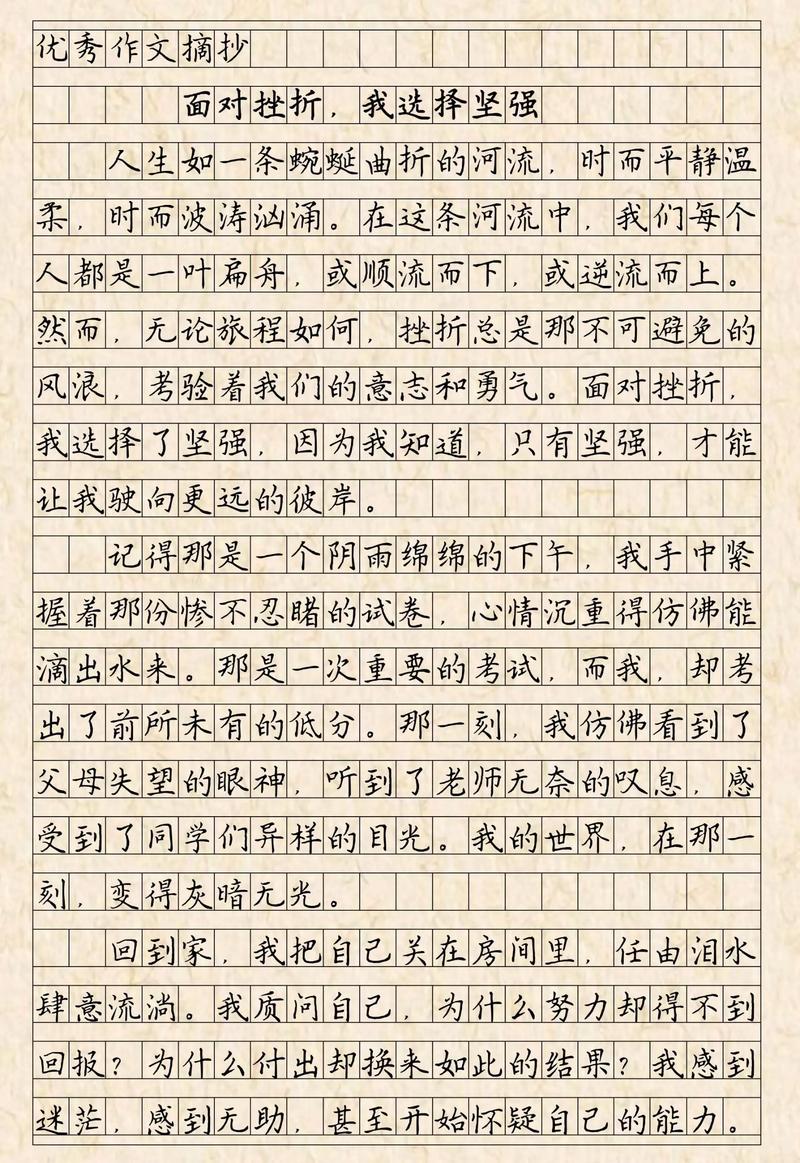 优秀作文摘抄
面对挫折，我选择坚强
人生如一条蜿蜒曲折的河流，时而平静温
柔，时而波涛汹涌。在这条河流中，我们每个
人都是一叶扁舟，或顺流而下，或逆流而上。
然而，无论旅程如何，挫折总是那不可避免的
风浪，考验着我们的意志和勇气。面对挫折，
我选择了坚强，因为我知道，只有坚强，才能
让我驶向更远的彼岸。
记得那是一个阴雨绵绵的下午，我手中紧
握着那份惨不忍睹的试卷，心情沉重得仿佛能
滴出水来。那是一次重要的考试，而我，却考
出了前所未有的低分。那一刻，我仿佛看到了
父母失望的眼神，听到了老师无奈的叹息，感
受到了同学们异样的目光。我的世界，在那一
刻，变得灰暗无光。
回到家，我把自己关在房间里，任由泪水
肆意流淌。我质问自己，为什么努力却得不到
回报？为什么付出却换来如此的结果？我感到
迷茫，感到无助，甚至开始怀疑自己的能力。